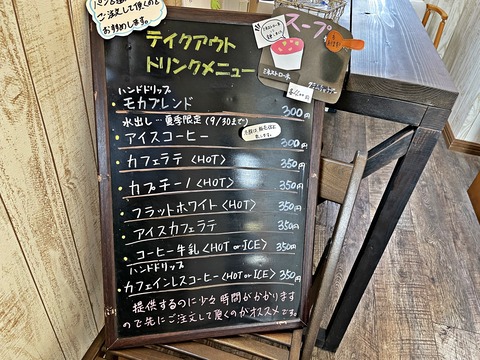 ご注文して頂くのを
お勧めします。
スープ
ミネストローネ
テイクアウト
ドリンクメニュー
ハンドドリップ
モカブレンド 300円
水出し…夏季限定(9/30まで)
アイスコーヒー 300円
カフェラテ〈HOT〉 350円
カプチーノ〈HOT〉 350円
フラットホワイト〈HOT〉 350円
アイスカフェラテ 350円
コーヒー牛乳〈HOT or ICE〉 350円
ハンドドリップ
カフェインレスコーヒー〈HOT or ICE〉 350円
提供するのに少々時間がかかります
ので先にご注文して頂くのがオススメです。